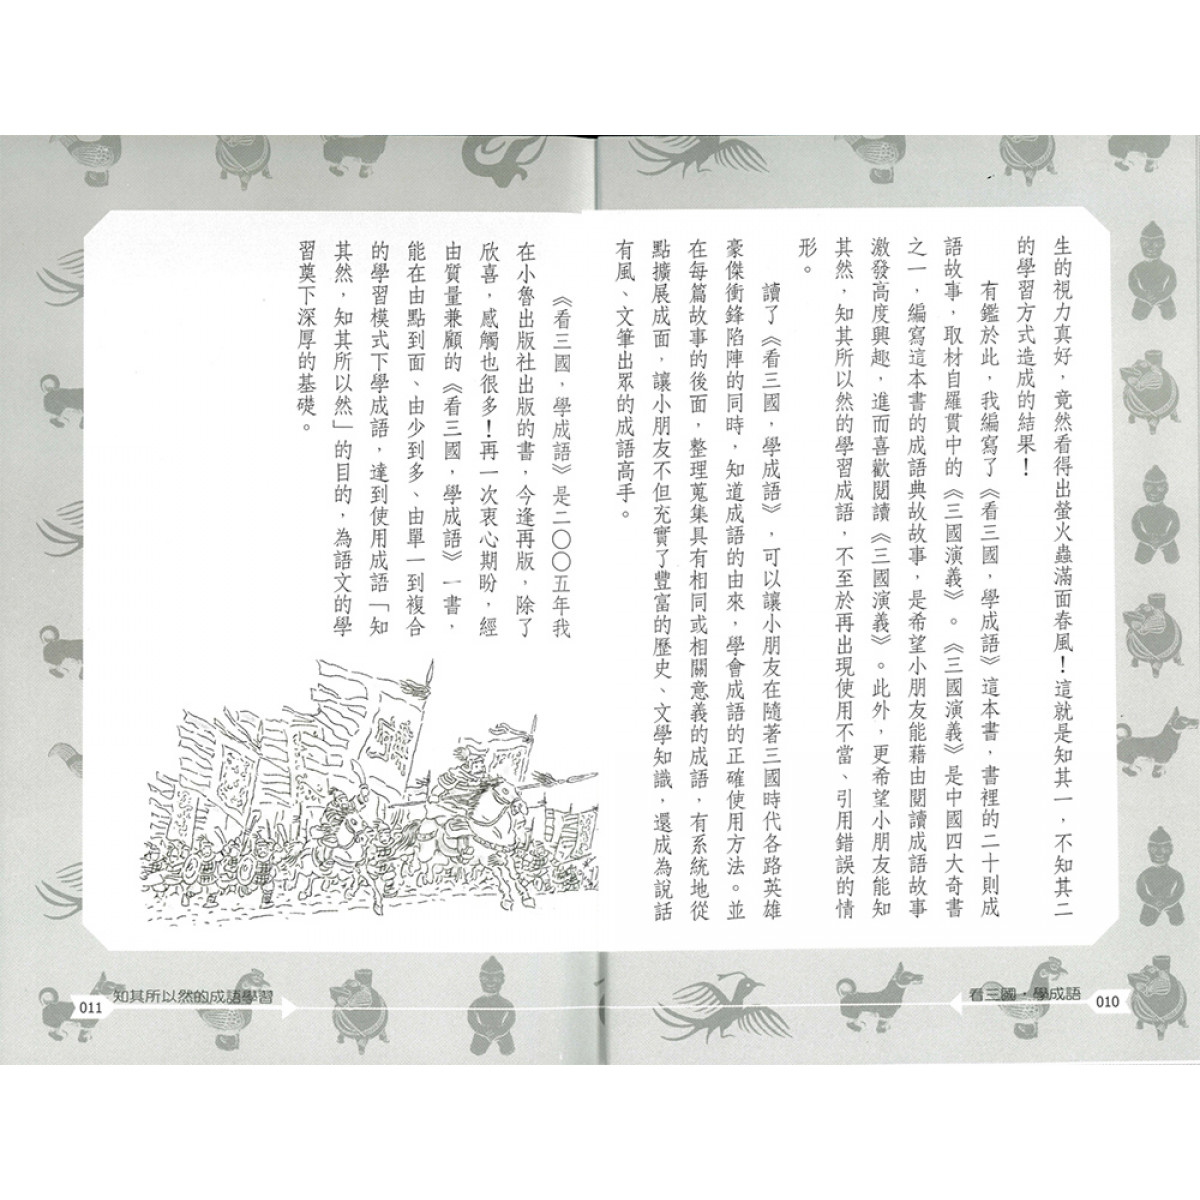 生的視力真好，竟然看得出螢火蟲滿面春風！這就是知其一，不知其二
的學習方式造成的結果！
有鑑於此，我編寫了《看三國，學成語》這本書，書裡的二十則成
語故事，取材自羅貫中的《三國演義》。《三國演義》是中國四大奇書
之一，編寫這本書的成語典故故事，是希望小朋友能藉由閱讀成語故事
激發高度興趣，進而喜歡閱讀《三國演義》。此外，更希望小朋友能知
其然，知其所以然的學習成語，不至於再出現使用不當、引用錯誤的情
形。
讀了《看三國，學成語》，可以讓小朋友在隨著三國時代各路英雄
豪傑衝鋒陷陣的同時，知道成語的由來，學會成語的正確使用方法。並
在每篇故事的後面，整理蒐集具有相同或相關意義的成語，有系統地從
點擴展成面，讓小朋友不但充實了豐富的歷史、文學知識，還成為說話
有風、文筆出眾的成語高手。
看三國，學成語
010
《看三國，學成語》是二〇〇五年我
在小魯出版社出版的書，今逢再版，除了
欣喜，感觸也很多！再一次衷心期盼，經
由質量兼顧的《看三國，學成語》一書，
能在由點到面、由少到多、由單一到複合
的學習模式下學成語，達到使用成語「知
其然，知其所以然」的目的，為語文的學
習奠下深厚的基礎。
011
知其所以然的成語學習